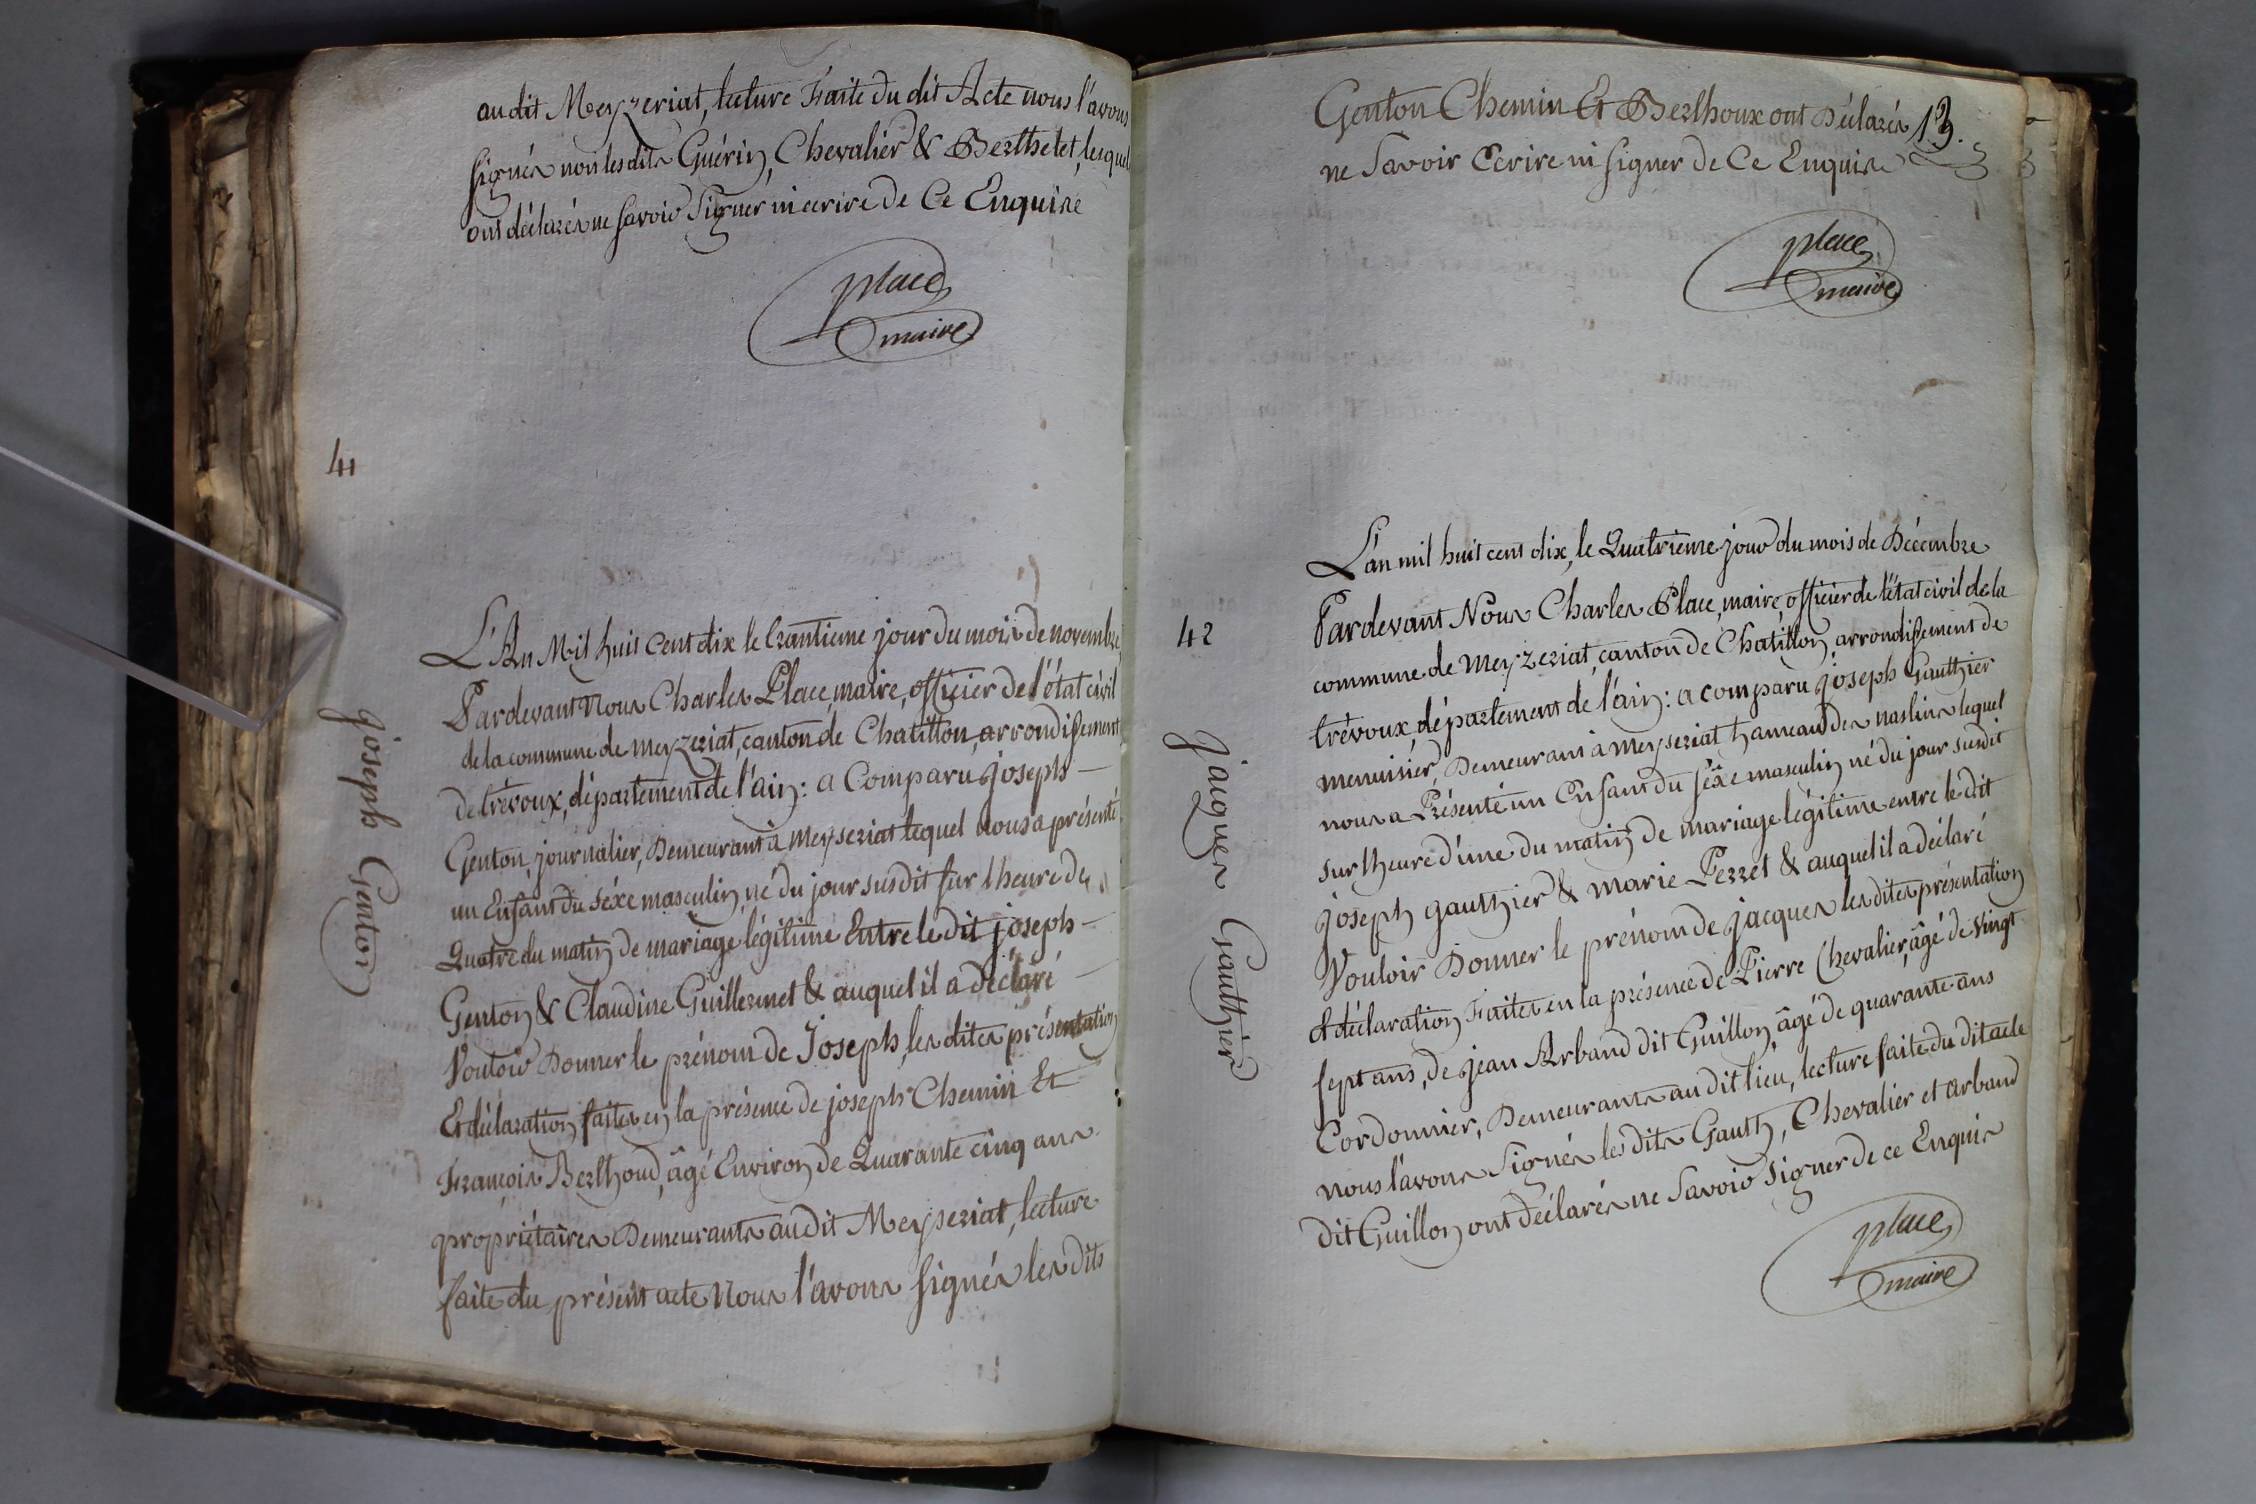 au dit Meyzeriat, lecture Faite du dit Acte nous l'avons
signés non lesdits Guérin, Chevalier & Berthelet, lesquels
ont déclarés ne savoir signer ni ecrire de Ce Enquise
place
maire
41
Joseph Genton
L'An Mil huit Cent dix le trantieme jour du mois de novembre,
Pardevant Nous Charles Place, maire, officier de l'état civil
de la commune de meyzeriat, canton de Chatillon, arrondissement
de trévoux, département de l'ain : a Comparu joseph
Genton, journalier, Demeurant à meyseriat lequel nous a présenté
un Enfant du séxe masculin, né du jour susdit sur l'heure de
Quatre du matin de mariage légitime Entre le dit joseph
Genton & Claudine Guillermet & auquel il a déclaré
Vouloir Donner le prénom de Joseph, les dites présentation
Et déclaration faites en la présence de joseph Chemin Et
François Berthoud, âgé Environ de Quarante cinq ans
propriétaires Demeurants au dit Meyseriat, lecture
faite du présent acte Nous l'avons signés les dits
Genton Chemin Et Berthoux ont Déclarés
13.
ne savoir Ecrire ni signer de Ce Enquise
place
maire
42
Jacques Gauthier
L'an mil huit cent dix, le Quatrieme jour du mois de Décembre
Pardevant Nous Charles Place, maire, officier de l'état civil de la
commune de Meyzeriat, canton de Chatillon, arrondissement de
trévoux, département de l'ain : a comparu joseph Gauthier
menuisier, Demeurant à meyseriat hameau des naslins lequel
nous a Présenté un Enfant du séxe masculin né du jour susdit
sur l'heure d'une du matin de mariage légitime entre le dit
joseph gauthier & marie Perret & auquel il a déclaré
Vouloir Donner le prénom de jacques les dites présentation
et déclaration Faites en la présence de Pierre Chevalier, âgé de vingt
sept ans, de jean Arband dit Guillon, âgé de quarante ans
Cordonnier, Demeurants au dit lieu, lecture faite du dit acte
nous l'avons signés les dits Gauth, Chevalier et arband
dit Guillon ont déclarés ne savoir signer de ce Enquis
place
maire